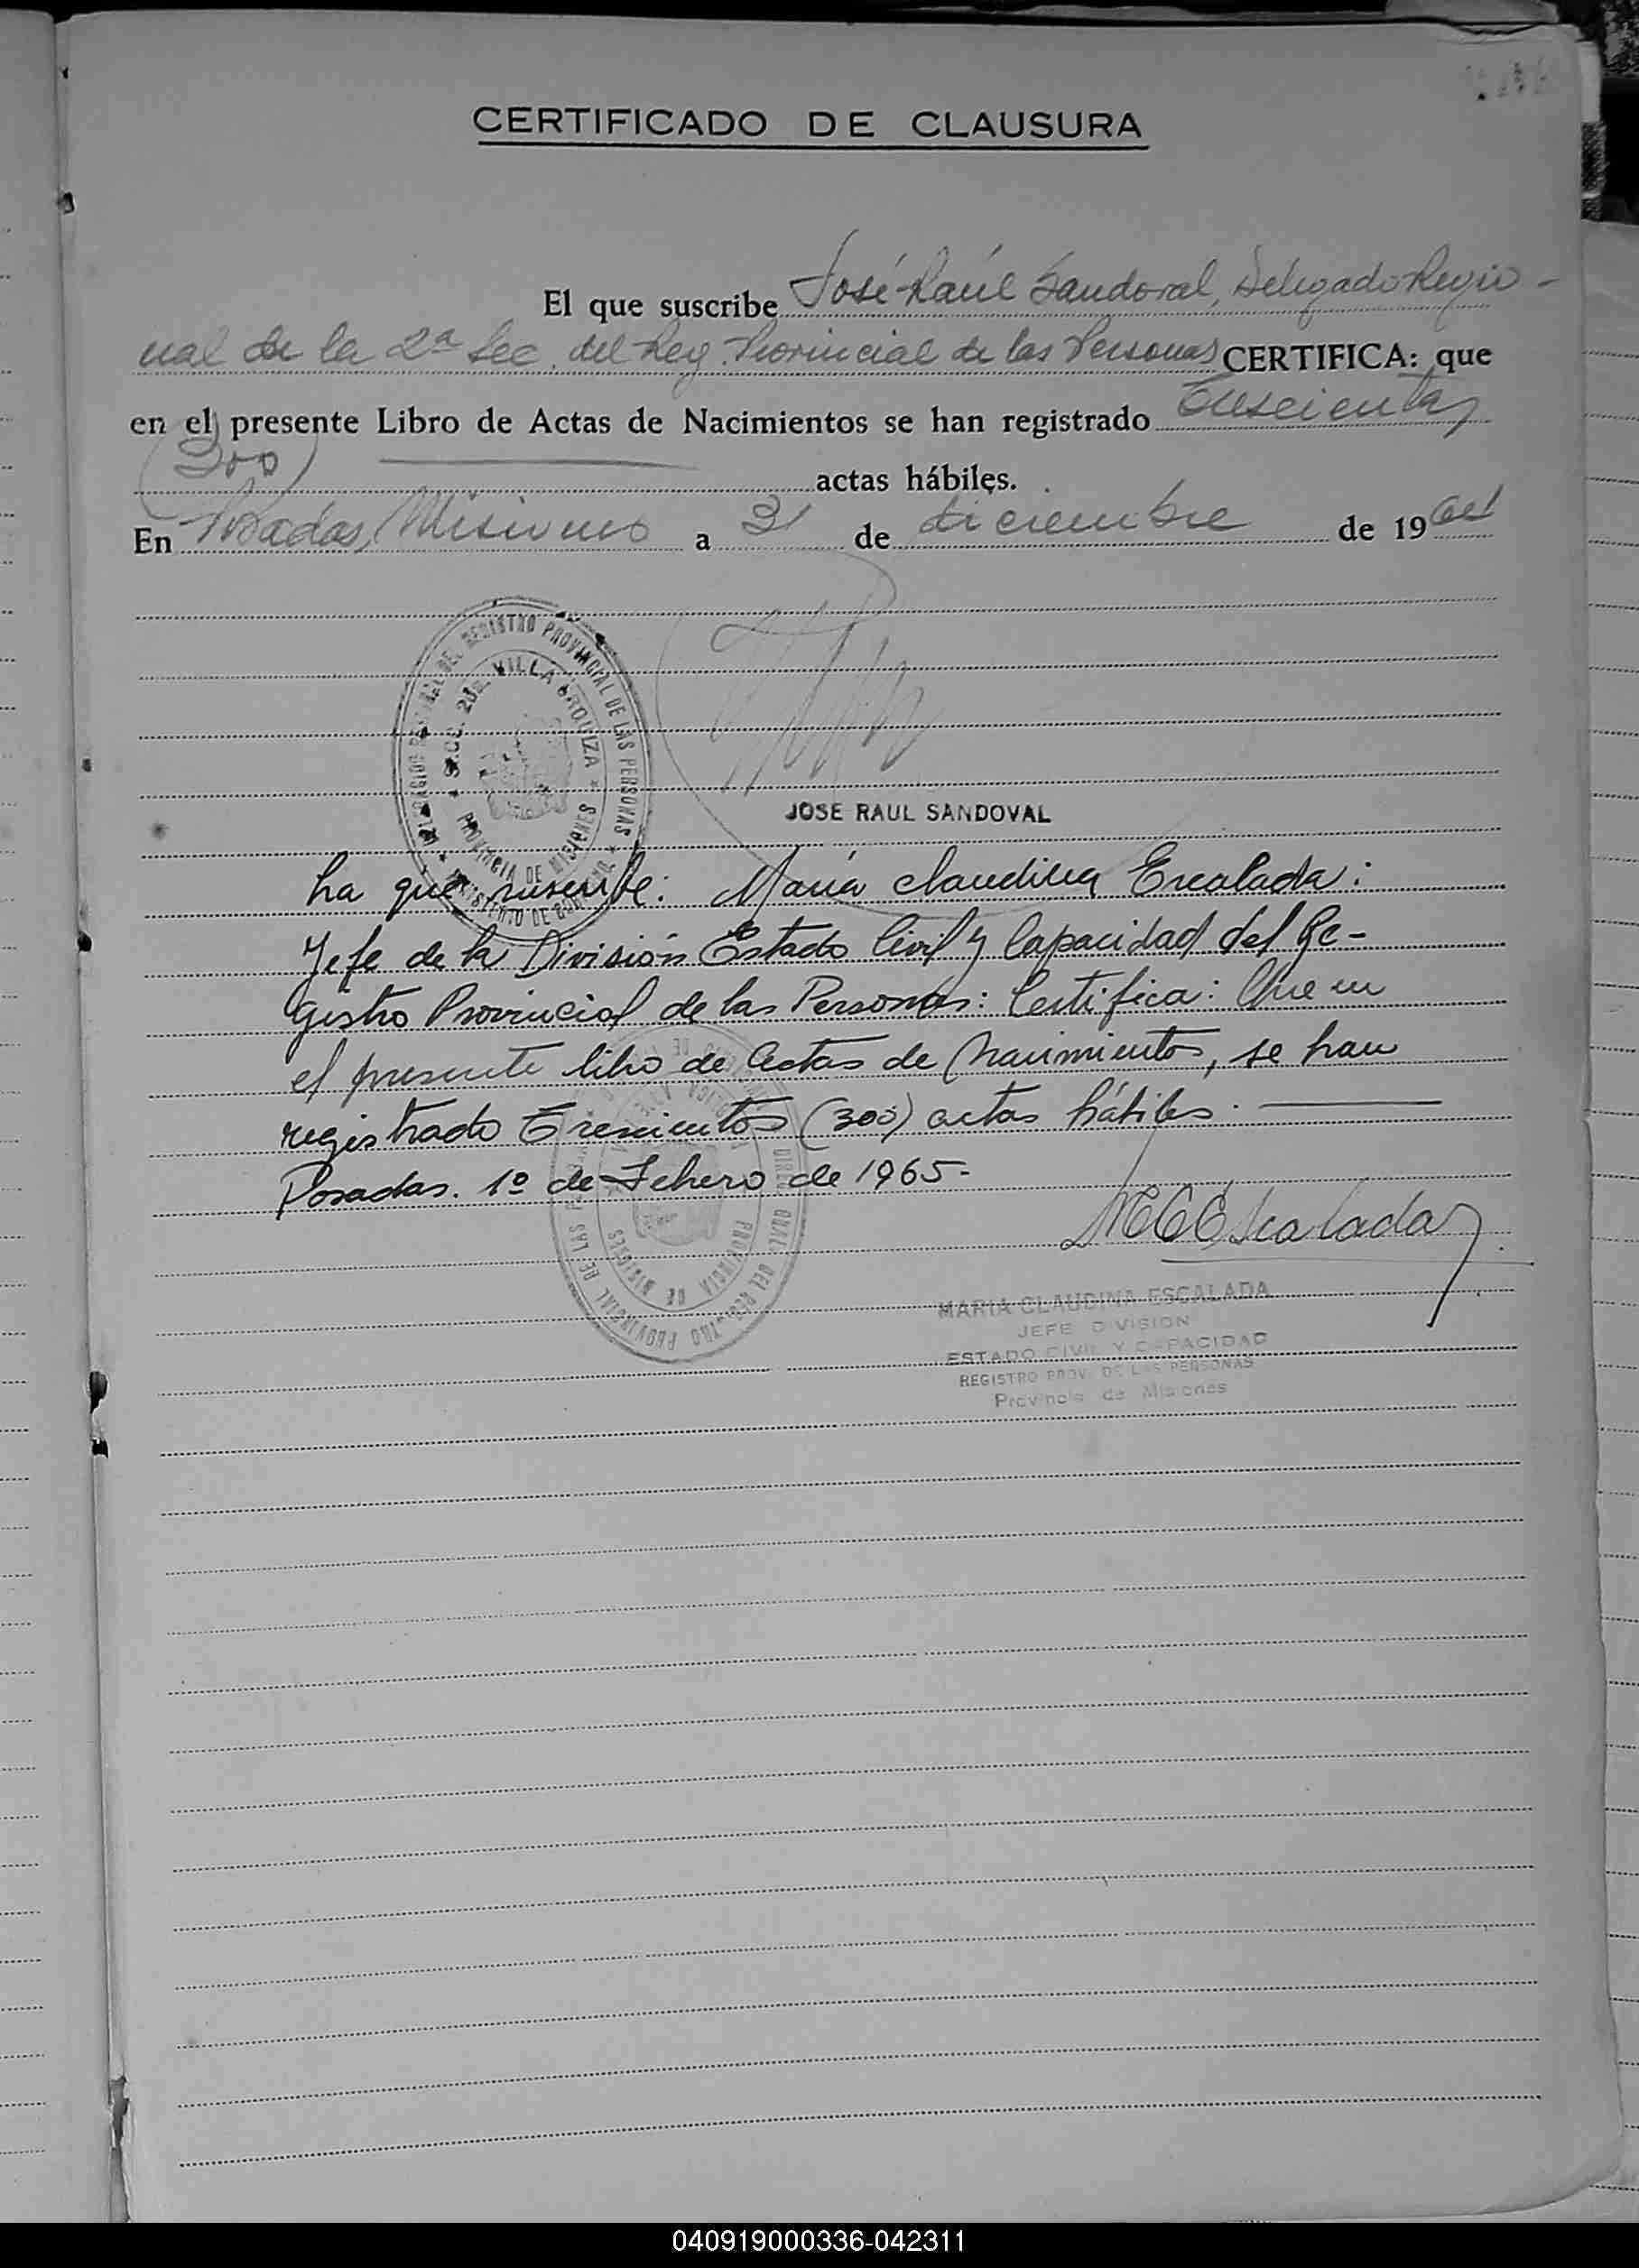 CERTIFICADO DE CLAUSURA
El que suscribe José Raúl Sandoval, Delegado Regio-
nal de la 2ª Sec. del Reg. Provincial de las Personas CERTIFICA: que
en el presente Libro de Actas de Nacimientos se han registrado Trescientas
(300) actas hábiles.
En Posadas, Misiones a 31 de diciembre de 1964
REGISTRO PROVINCIAL DE LAS PERSONAS
SECC. 2da. VILLA URQUIZA
PROVINCIA DE MISIONES
JOSE RAUL SANDOVAL
La que suscribe: María Claudina Escalada:
Jefe de la División Estado Civil y Capacidad del Re-
gistro Provincial de las Personas: Certifica: Que en
el presente libro de Actas de Nacimientos, se han
registrado Trescientos (300) actas hábiles.
Posadas. 1º de Febrero de 1965-
MCEscalada
DIREC. GRAL. DEL REGISTRO PROVINCIAL DE LAS
PROVINCIA DE MISIONES
MARIA CLAUDINA ESCALADA
JEFE DIVISION
ESTADO CIVIL Y CAPACIDAD
REGISTRO PROV. DE LAS PERSONAS
Provincia de Misiones
040919000336-042311